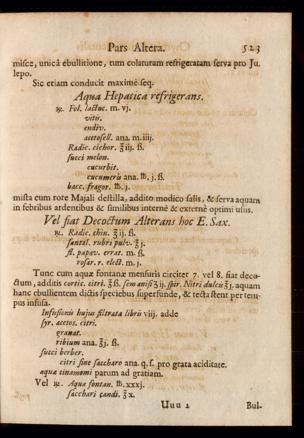 Pars Altera. 523
misce, unicâ ebullitione, tum colaturam refrigeratam serva pro Ju-
lepo.
Sic etiam conducit maximè seq.
Aqua Hepatica refrigerans.
℞. Fol. lactuc. m. vj.
vitis.
endiv.
acetosell. ana. m. iiij.
Radic. cichor. ℥ iij. ß.
succi melon.
cucurbit.
cucumeris ana. ℔. j. ß.
bacc. fragor. ℔. j.
mista cum rore Majali destilla, addito modico salis, & serva aquam
in febribus ardentibus & similibus internè & externè optimi usus.
Vel fiat Decoctum Alterans hoc E. Sax.
℞. Radic. chin. ℥ ij. ß.
santal. rubri pulv. ℥ j.
fl. papav. errat. m. ß.
rosar. r. elect. m. j.
Tunc cum aquæ fontanæ mensuris circiter 7. vel 8. fiat deco-
ctum, additis cortic. citri. ℥ ß. sem anisi ʒ ij. spir. Nitri dulcis ʒ j. aquam
hanc ebullientem dictis speciebus superfunde, & tecta stent per tem-
pus infusa.
Infusionis hujus filtratæ libris viij. adde
syr. acetos. citri.
granat.
ribium ana. ℥ j. ß.
succi berber.
citri sine saccharo ana. q. s. pro grata aciditate.
aquæ cinamomi parum ad gratiam.
Vel ℞. Aquæ fontan. ℔. xxxj.
sacchari candi. ℥ x.
Uuu 2 Bul-